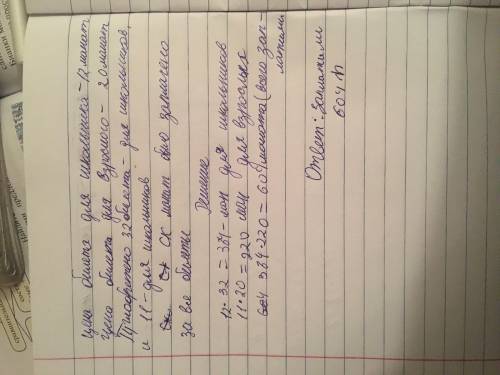 Цена билета для школьника - 12 манат
цена билета для взрослого - 20 манат
Приобретено 32 билета - для школьников,
и 11 - для школьников
ск манат было заплачено
за все билеты
Решение
12 · 32 = 384 - ман для школьников
11 · 20 = 220 ман для взрослых
384 + 220 = 604 маната (всего зап-
латили
Ответ: заплатили
604 м